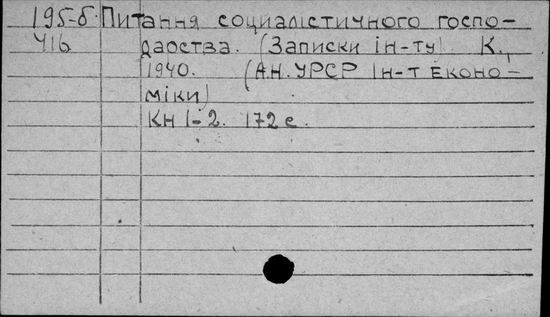 195-б Питання социалістичного госпо-
416 даоства. (Записки ін-ту) К.,
1940. (АН. УРСР Ін-т Еконо-
міки)
Кн 1-2. 172 с.